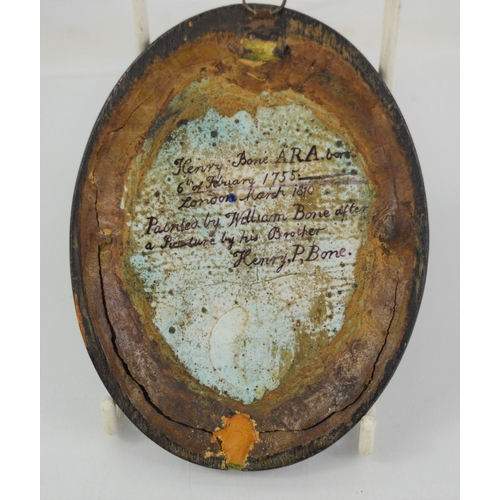 Henry Bone ARA. born
6th of Febuary 1755.
London March 1810
Painted by William Bone after
a Picture by his Brother
Henry, P, Bone.